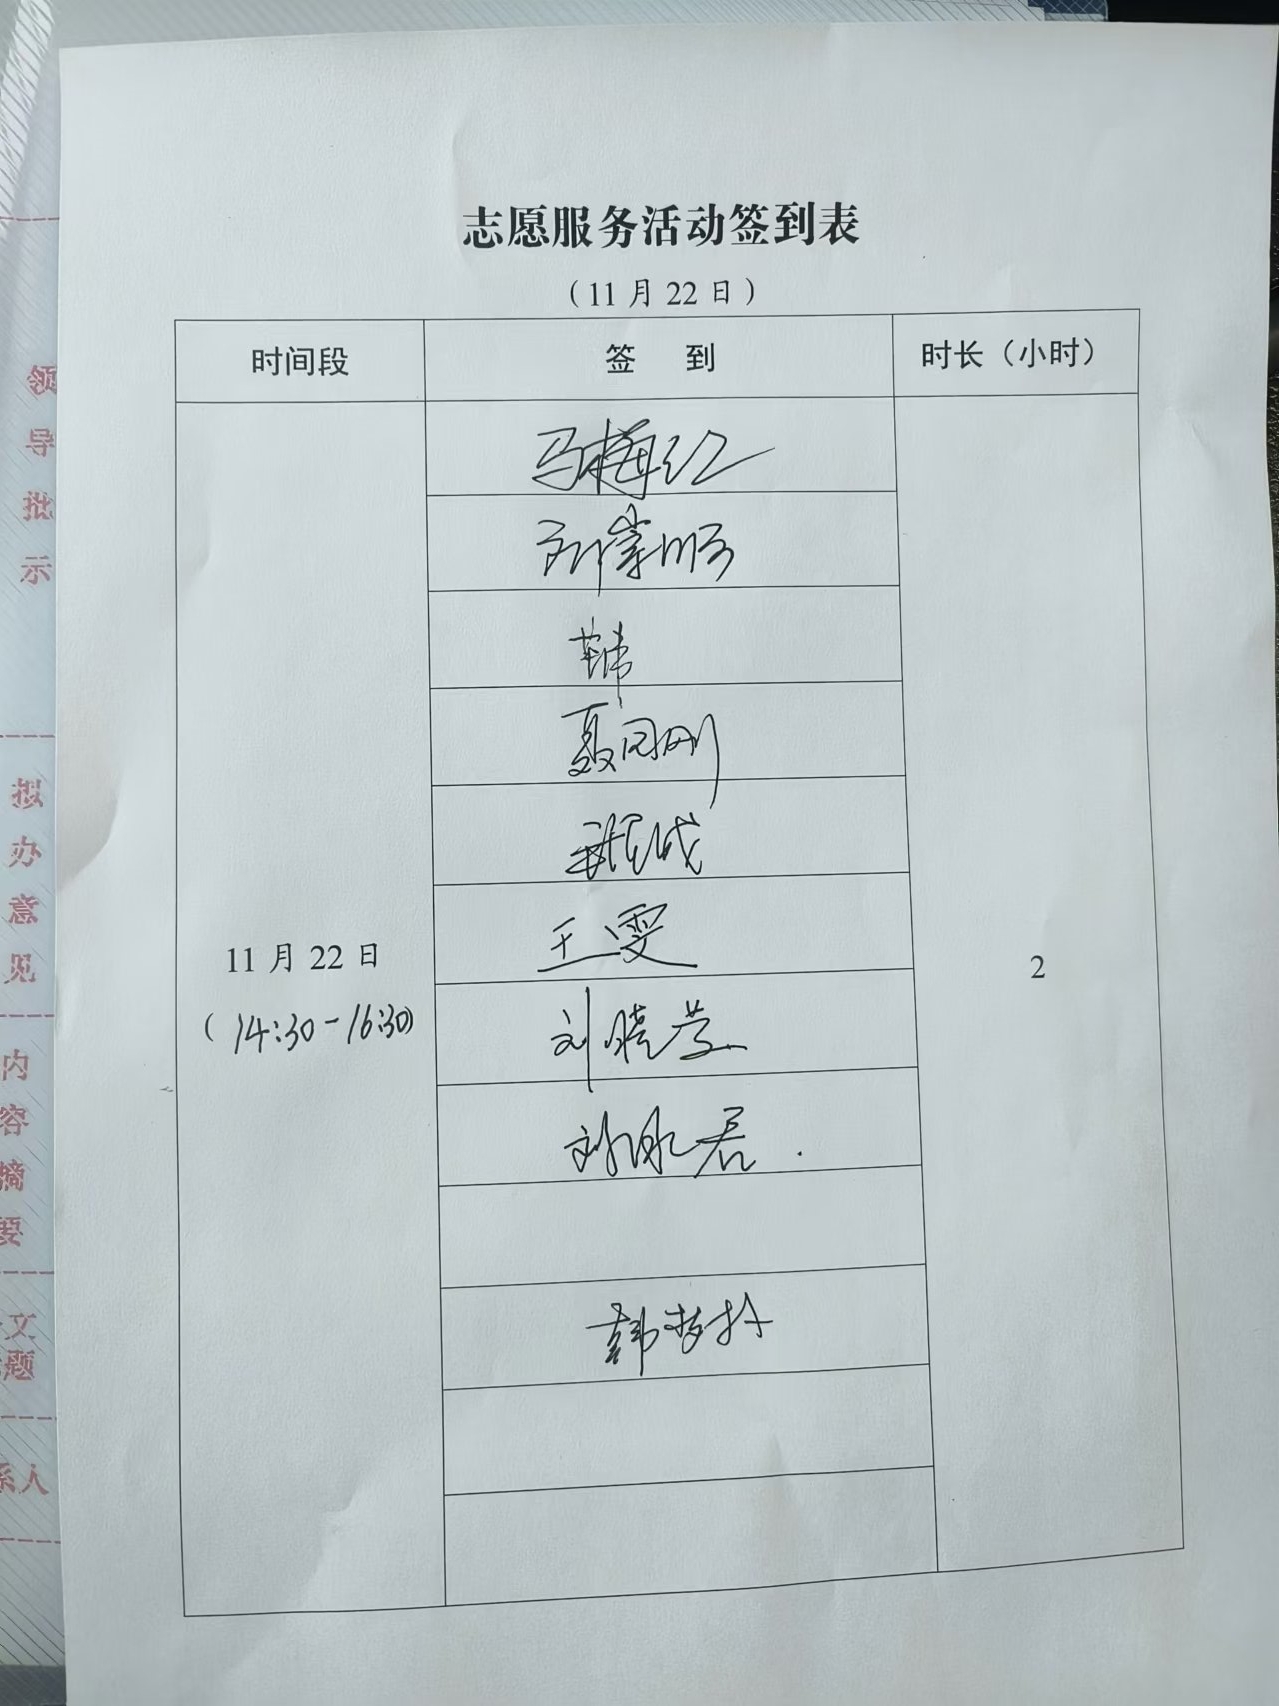 志愿服务活动签到表
（11 月 22 日）
时间段
签 到
时长（小时）
马梅红
刘崇顺
聂同刚
王雯
11 月 22 日
2
（14:30-16:30）
刘晓芸
刘永君.
韩梦
领导批示
拟办意见
内容摘要
文
题
系人